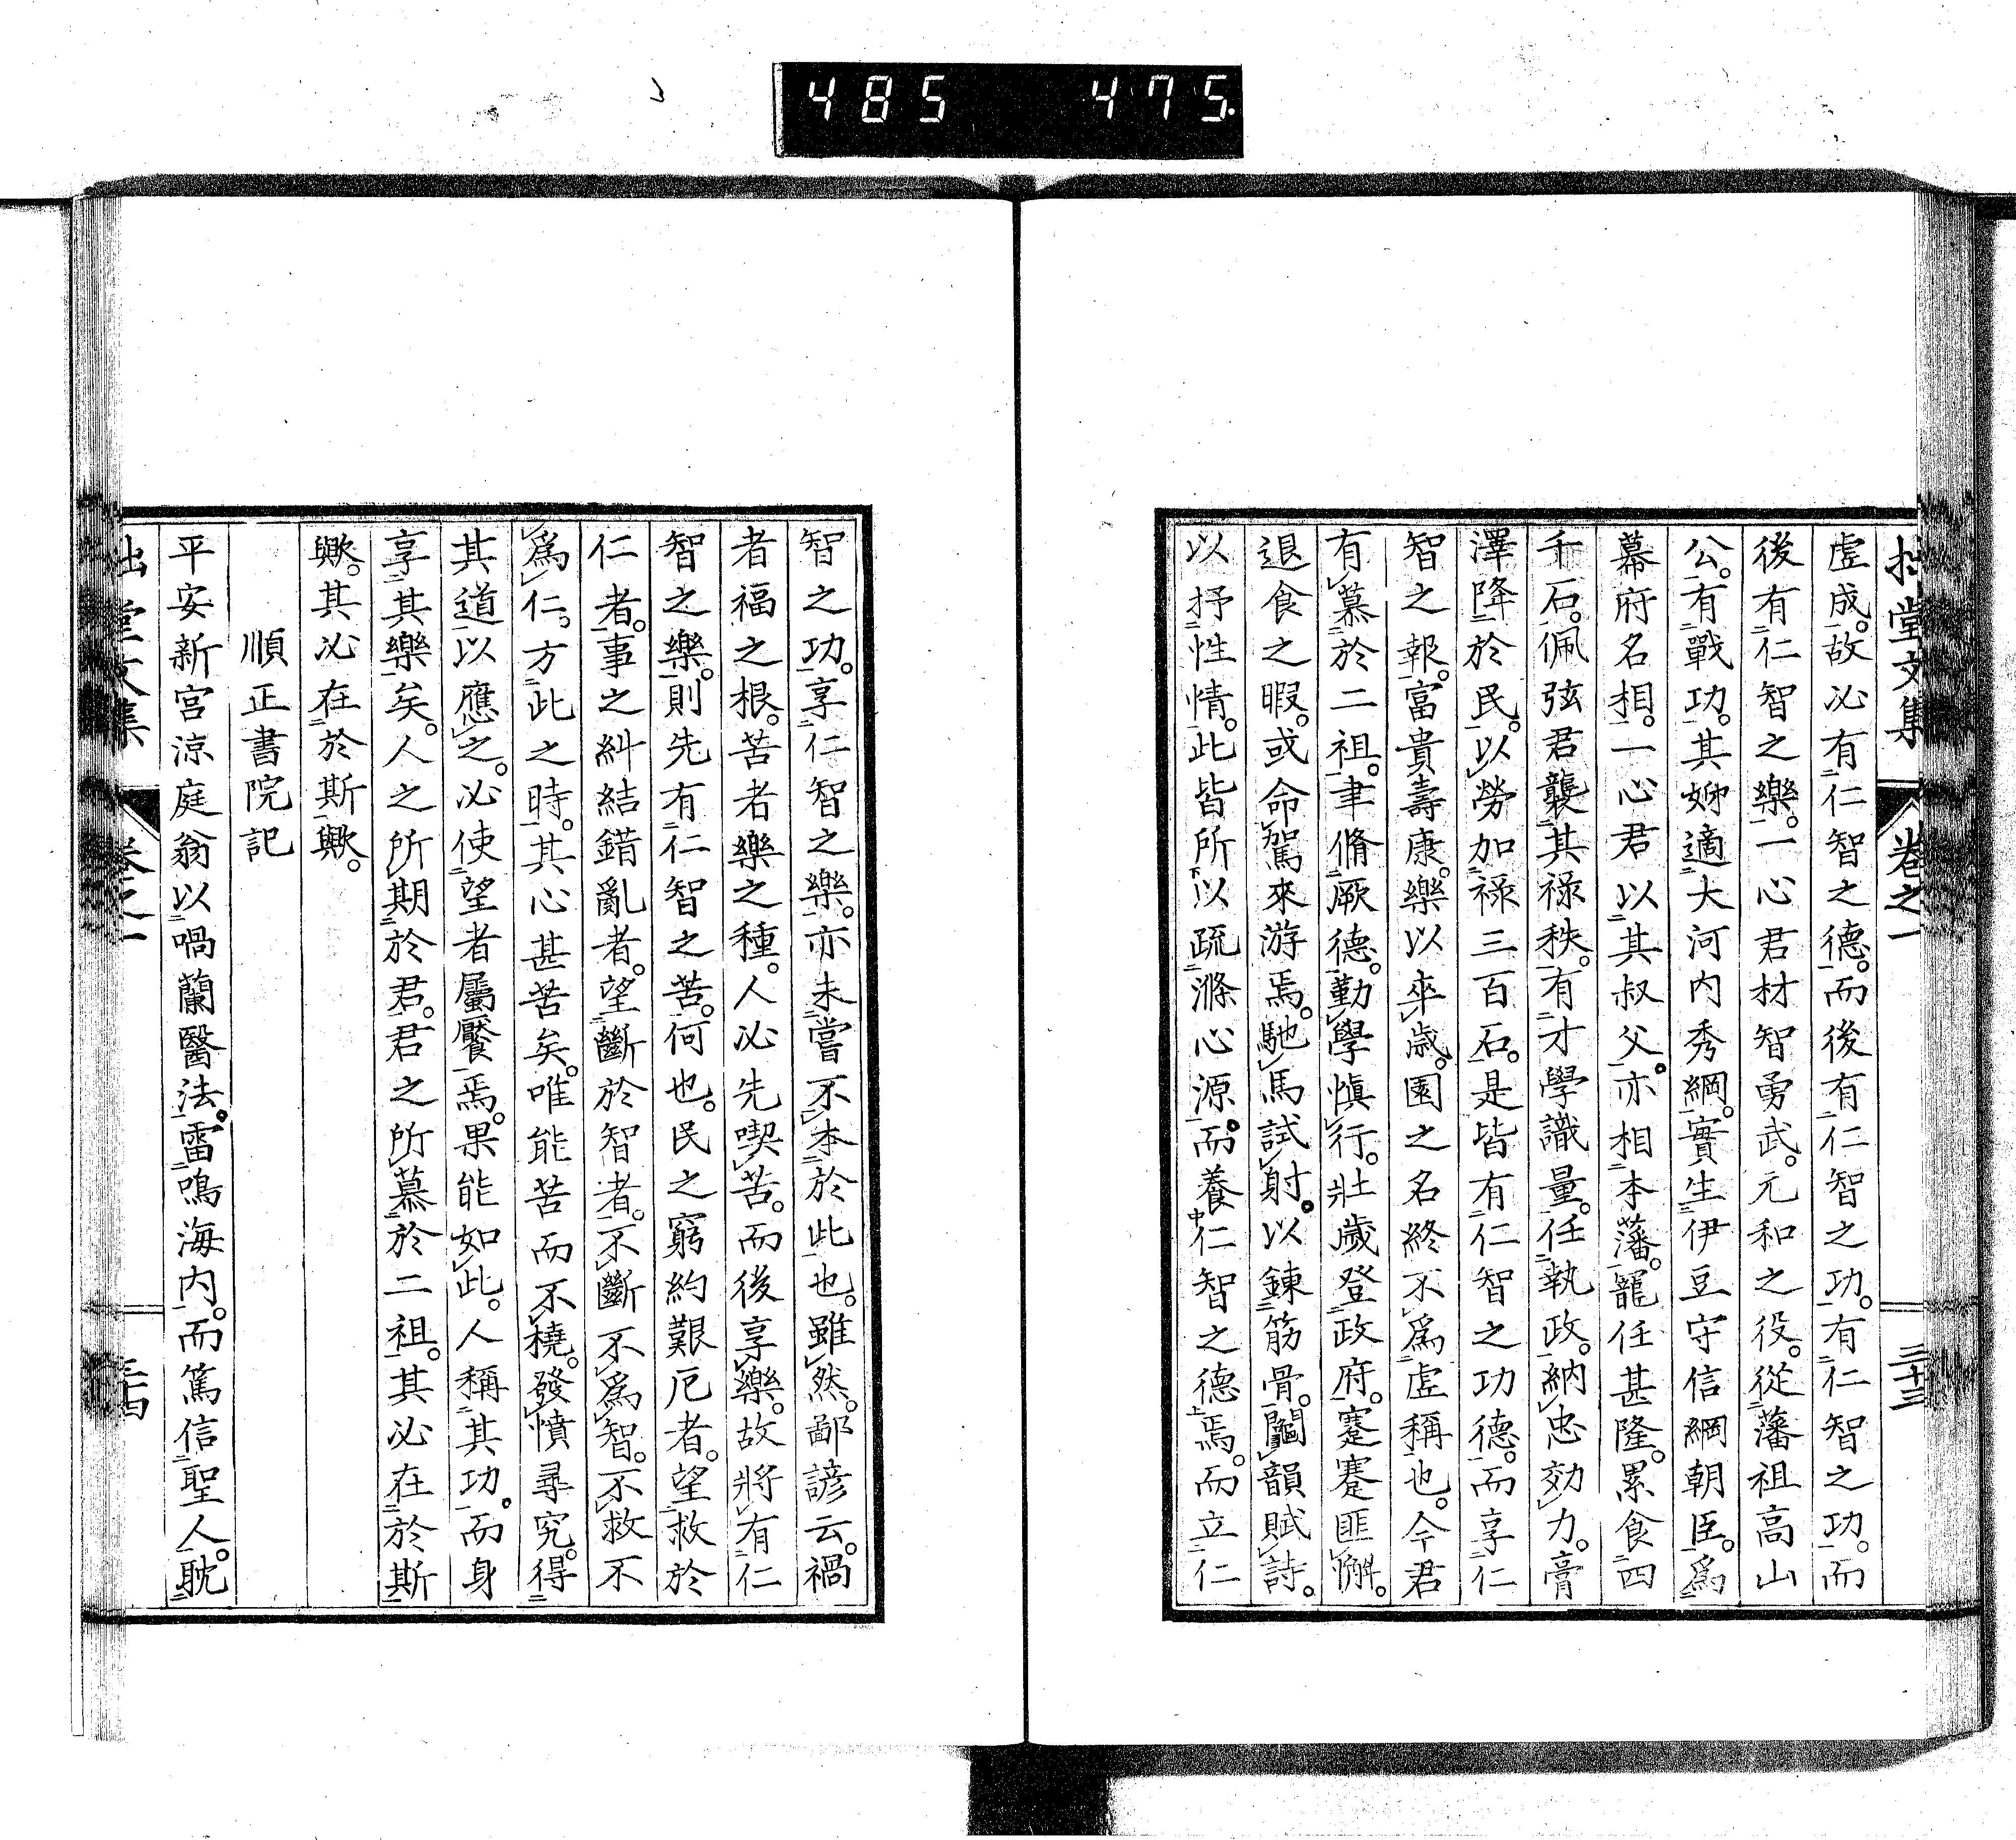 485 475
拙堂文集 卷之一 三十三
虚成。故必有仁智之德。而後有仁智之功。有仁智之功。而
後有仁智之樂。一心君材智勇武。元和之役。從藩祖高山
公。有戰功。其姊適大河内秀綱。實生伊豆守信綱朝臣。爲
幕府名相。一心君以其叔父。亦相本藩。寵任甚隆。累食四
千石。佩弦君襲其祿秩。有才學識量。任執政。納忠効力。膏
澤降於民。以勞加祿三百石。是皆有仁智之功德。而享仁
智之報。富貴壽康。樂以卒歲。園之名終不爲虚稱也。今君
有慕於二祖。聿脩厥德。勤學愼行。壯歲登政府。蹇蹇匪懈。
退食之暇。或命駕來游焉。馳馬試射。以鍊筋骨。鬮韻賦詩。
以抒性情。此皆所以疏滌心源。而養仁智之德焉。而立仁
智之功。享仁智之樂。亦未嘗不本於此也。雖然。鄙諺云。禍
者福之根。苦者樂之種。人必先喫苦。而後享樂。故將有仁
智之樂。則先有仁智之苦。何也。民之窮約艱厄者。望救於
仁者。事之糾結錯亂者。望斷於智者。不斷不爲智。不救不
爲仁。方此之時。其心甚苦矣。唯能苦而不撓。發憤尋究。得
其道以應之。必使望者屬饜焉。果能如此。人稱其功。而身
享其樂矣。人之所期於君。君之所慕於二祖。其必在於斯
歟。其必在於斯歟。
順正書院記
平安新宮涼庭翁以喎蘭醫法。雷鳴海内。而篤信聖人。耽
拙堂文集 卷之一 三十四